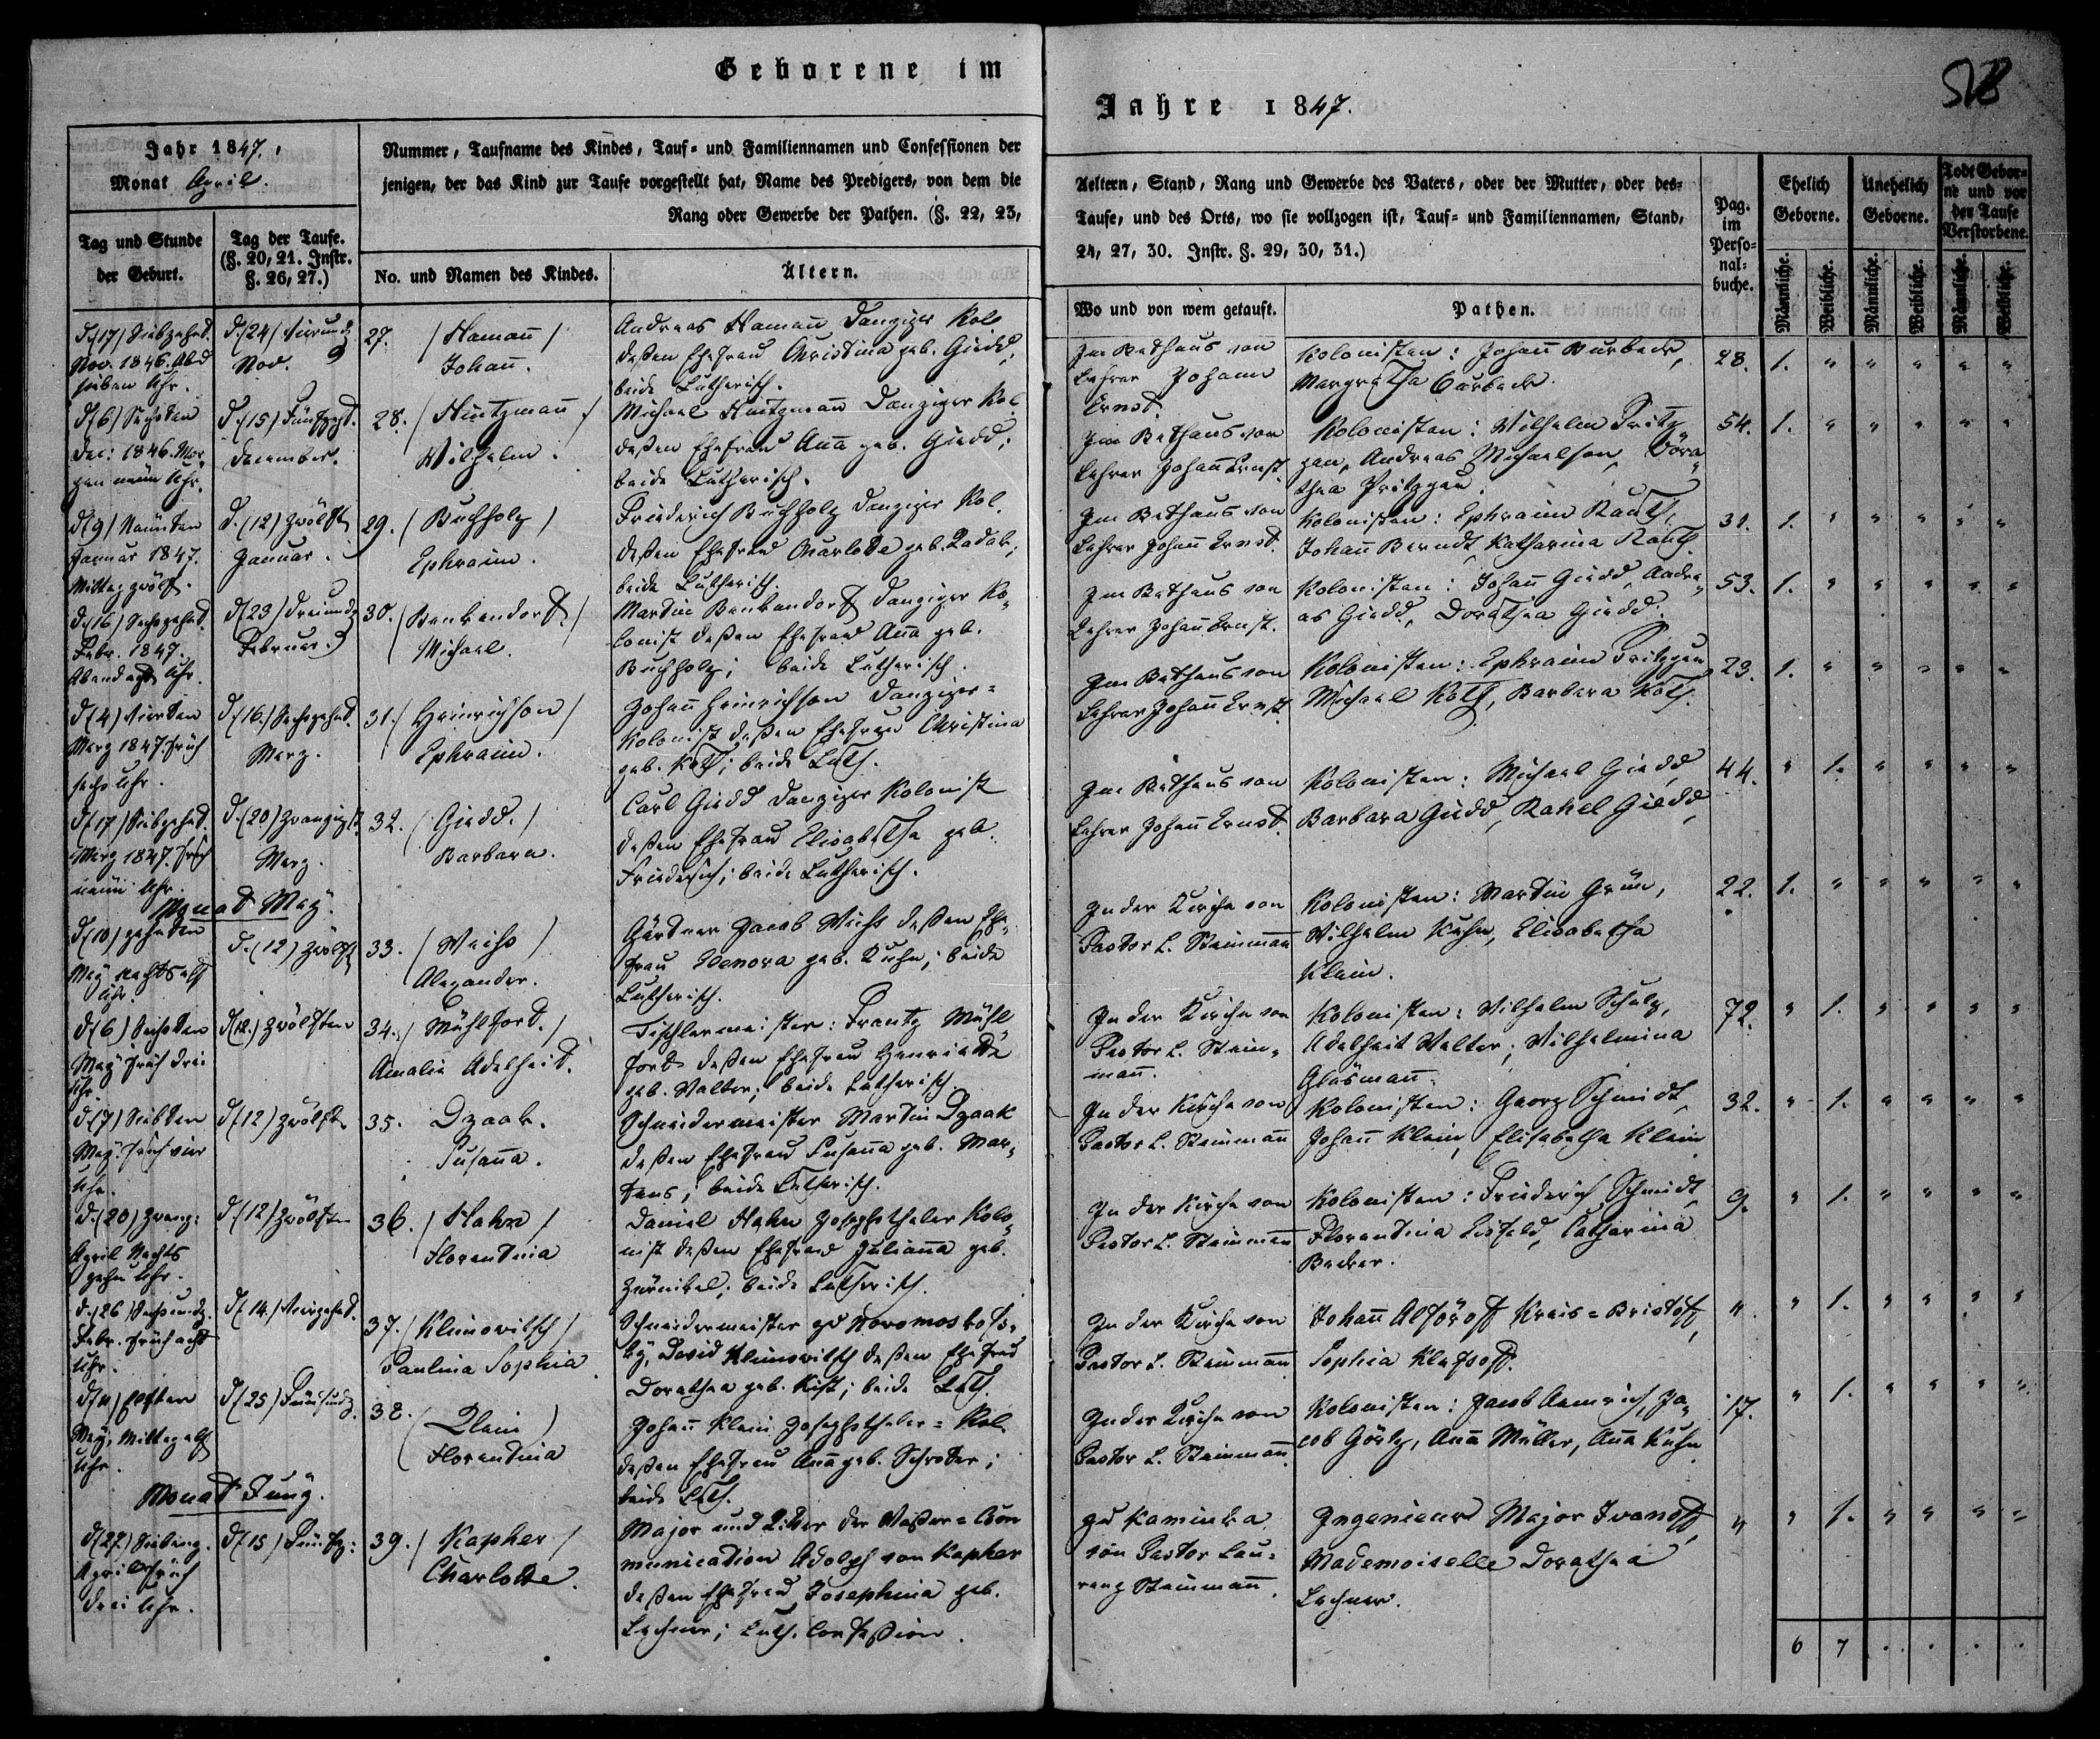 Geborene im
Jahre 1847.
Jahr 1847.
Monat April.
Nummer, Taufname des Kindes, Tauf= und Familiennamen und Confessionen der
jenigen, der das Kind zur Taufe vorgestellt hat, Name des Predigers, von dem die
Rang oder Gewerbe der Pathen. (§. 22, 23,
Aeltern, Stand, Rang und Gewerbe des Vaters, oder der Mutter, oder des=
Taufe, und des Orts, wo sie vollzogen ist, Tauf= und Familiennamen, Stand,
24, 27, 30. Instr. §. 29, 30, 31.)
Tag und Stunde
der Geburt.
Tag der Taufe.
(§. 20, 21. Instr.
§. 26, 27.)
No. und Namen des Kindes.
Ältern.
Wo und von wem getauft.
Pathen.
Pag.
im
Perso=
nal=
buche.
Ehelich
Geborne.
Unehelich
Geborne.
Todt Gebor=
ne und vor
der Taufe
Verstorbene.
Männliche.
Weibliche.
Männliche.
Weibliche.
Männliche.
Weibliche.
d. (17) Siebzehnt.
Nov. 1846. Abd
sieben Uhr.
d. (24) Vierundz
Nov.
27. (Hamañ)
Johañ.
Andreas Hamañ Danziger Kol
deßen Ehefrau Christina geb. Giedd,
beide Lutherisch.
Im Bethaus von
Lehrer Johann
Ernst.
Kolonisten: Johañ Burbeck,
Margretha Burbeck.
28. 1. " " " " "
d. (6) Sechsten
Dec: 1846. Mor
gen neun Uhr.
d. (15) Fünfzeht.
December.
28. (Hintzmañ)
Wilhelm.
Michael Hintzmañ Danziger Kol
deßen Ehefrau Aña geb. Giedd;
beide Lutherisch.
Im Bethaus von
Lehrer Johañ Ernst.
Kolonisten: Wilhelm Pritz
gau, Andreas Michaelson, Dora
thea Pritzgau.
54. 1. " " " " "
d. (9) Neunten
Januar 1847.
Mittag zwölf.
d. (12) Zwölft
Januar.
29. (Buchholz)
Ephraim.
Friederich Buchholz Danziger Kol.
deßen Ehefrau Charlotte geb. Zadak;
beide Lutherisch.
Im Bethaus von
Lehrer Johañ Ernst.
Kolonisten: Ephraim Rauth,
Johañ Berndt, Katharina Rauth.
31. 1. " " " " "
d. (16) Sechszehnt.
Febr. 1847.
Abend acht Uhr.
d. (23) Dreiundz
Februar.
30. (Benkendorf)
Michael.
Martin Benkendorf Danziger Ko
lonist deßen Ehefrau Aña geb.
Buchholz; beide Lutherisch.
Im Bethaus von
Lehrer Johañ Ernst.
Kolonisten: Johañ Giedd, Andre
as Giedd, Dorathea Giedd.
53. 1. " " " " "
d. (4) Vierten
Merz 1847. früh
sechs Uhr.
d. (16.) Sechszehnt.
Merz.
31. (Heinrichson)
Ephraim.
Johañ Heinrichson Danziger=
Kolonist deßen Ehefrau Christina
geb. Koth; beide Luth.
Im Bethaus von
Lehrer Johañ Ernst.
Kolonisten: Ephraim Pritzgau
Michael Koth, Barbara Koth.
23. 1. " " " " "
d. (17) Siebzehnt.
Merz 1847. früh
neun Uhr.
d. (20) Zwanzigst
Merz.
32. (Giedd.)
Barbara.
Carl Giedd Danziger Kolonist
deßen Ehefrau Elisabetha geb.
Friederich; beide Lutherisch.
Im Bethaus von
Lehrer Johañ Ernst.
Kolonisten: Michael Giedd,
Barbara Giedd, Rahel Giedd,
44. " 1. " " " "
Monat May.
d. (10) zehnten
May nachts elf
Uhr.
d. (12) Zwölft
33. (Weihs)
Alexander.
Gärtner Jacob Weihs deßen Ehe
frau Elenora geb. Kuhn; beide
Lutherisch.
In der Kirche von
Pastor L. Steinmañ
Kolonisten: Martin Grün,
Wilhelm Kuhn, Elisabetha
Klein.
22. 1. " " " " "
d. (6) Sechsten
May früh drei
Uhr
d. (12.) zwölften
34. (Mühlford.)
Amalia Adelheid.
Tischlermeister: Frantz Mühl
ford deßen Ehefrau Henriette
geb. Walter; beide Lutherisch.
In der Kirche von
Pastor L. Stein=
mañ.
Kolonisten: Wilhelm Schulz,
Adelheit Walter, Wilhelmina
Glasmañ.
72. " 1. " " " "
d. (7) Siebten
May. früh vier
Uhr.
d. (12) zwölft.
35. Dzaak.
Susaña.
Schneidermeister Martin Dzaak
deßen Ehefrau Susaña geb. Mar
tens; beide Lutherisch.
In der Kirche von
Pastor L. Steinmañ
Kolonisten: Georg Schmidt,
Johañ Klein, Elisabetha Klein
32. " 1. " " " "
d. (20) Zwanz:
April Nachts
zehn Uhr.
d. (12) Zwölften
36. (Hahn)
Florentina
Daniel Hahn Josephsthaler Kolo
nist deßen Ehefrau Juliaña geb.
beide Lutherisch.
In der Kirche von
Pastor L. Steinmañ
Kolonisten: Friederich Schmidt,
Florentina Eisfeld, Catharina
Becker.
9. " 1. " " " "
d. (26) Sechsundz.
Febr. früh acht
Uhr.
d. (14.) Vierzehnt.
37. (Klimowitsch)
Paulina Sophia.
Schneidermeister zu Novomoskofs=
ky, David Klimowitsch deßen Ehefrau
Dorathea geb. Kist; beide Luth.
In der Kirche von
Pastor L. Steinmañ
Johañ Kreis=
Sophia
" " 1. " " " "
d. (11) Elften
May, Mittag elf
Uhr.
d. (25) Fünfundz.
38. (Klein)
Florentina
Johañ Klein Josephsthaler= Kol.
deßen Ehefrau Aña geb. Schroter;
beide Luth.
In der Kirche von
Pastor L. Steinmañ
Kolonisten: Jacob Aemrich, Ja
cob Görtz, Aña Müller, Aña Kuhn
17. " 1. " " " "
Monat Juny.
d. (27.) Siebenz.
April früh
drei Uhr.
d. (15) Fünfz:
39. (Kapher)
Charlotte.
Major und Ritter der Waßer=Com
munication Adolph von Kapher
deßen Ehefrau Josephina geb.
Lechner; Luth. Confeßion.
zu Kaminka
von Pastor Lau=
renz Steinmañ.
Ingenieur Major Ivanoff,
Mademoiselle Dorathea
Lechner.
" " 1. " " " "
6 7 . . . .